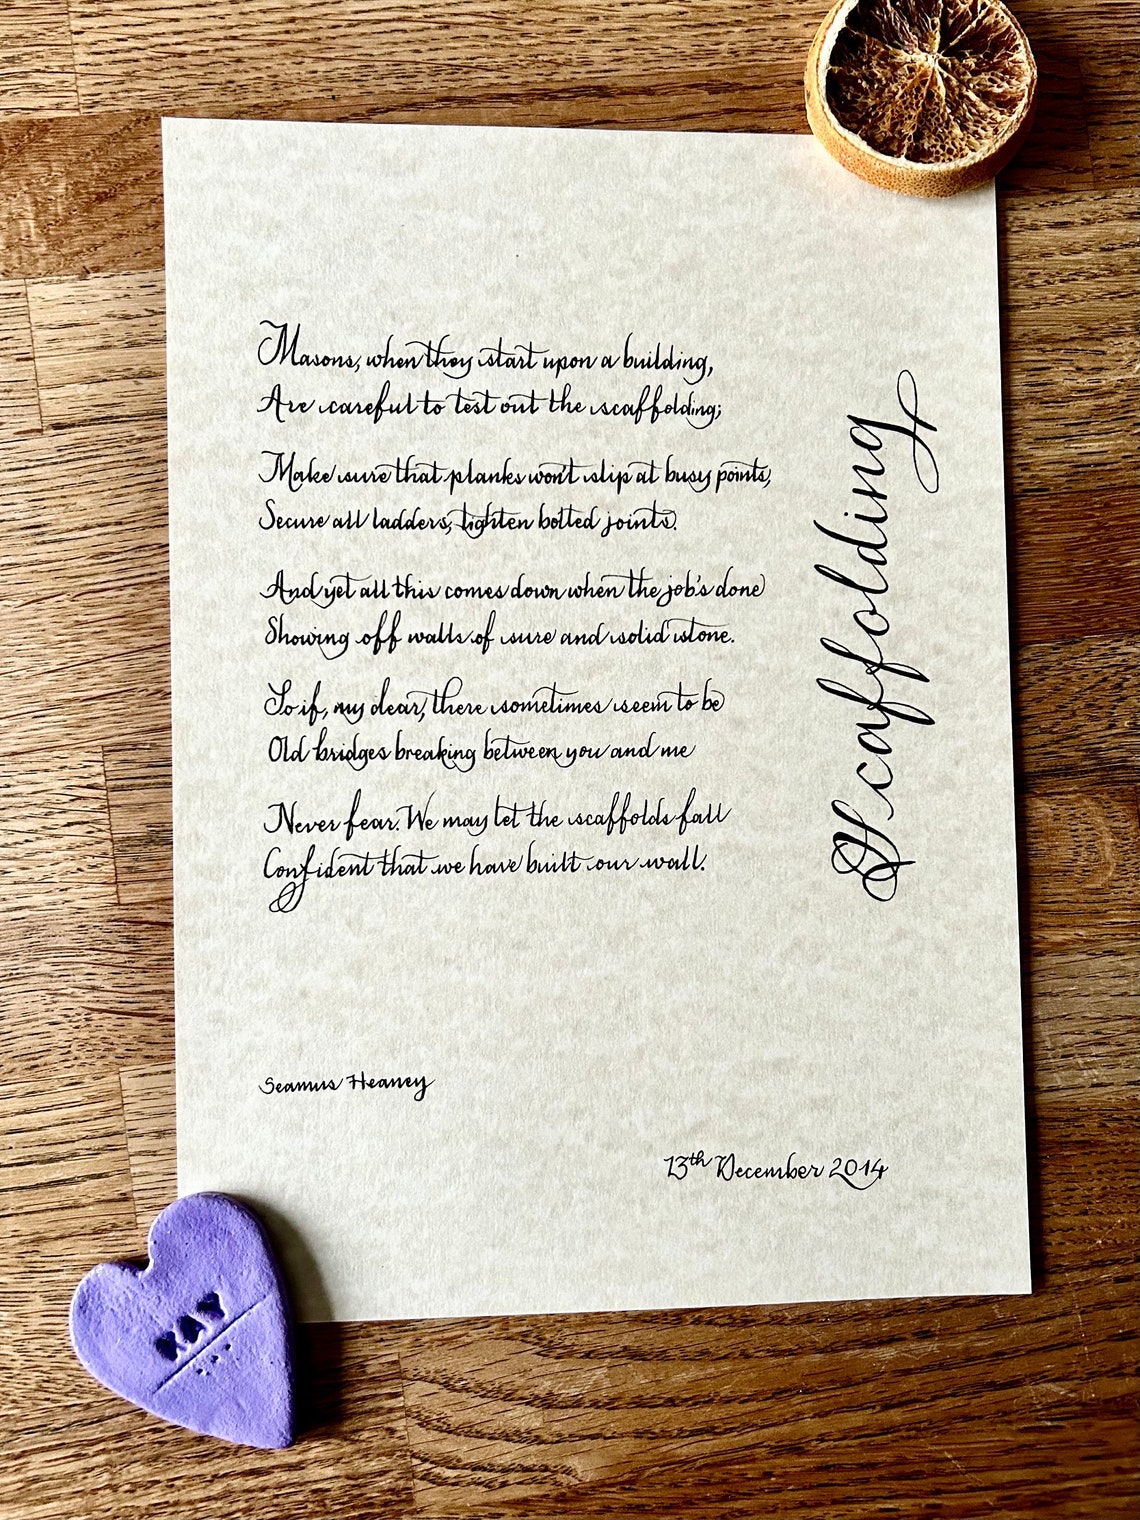 Scaffolding
Masons, when they start upon a building,
Are careful to test out the scaffolding;
Make sure that planks won't slip at busy points,
Secure all ladders, tighten bolted joints.
And yet all this comes down when the job's done
Showing off walls of sure and solid stone.
So if, my dear, there sometimes seem to be
Old bridges breaking between you and me
Never fear. We may let the scaffolds fall
Confident that we have built our wall.
Seamus Heaney
13th December 2014
KAY